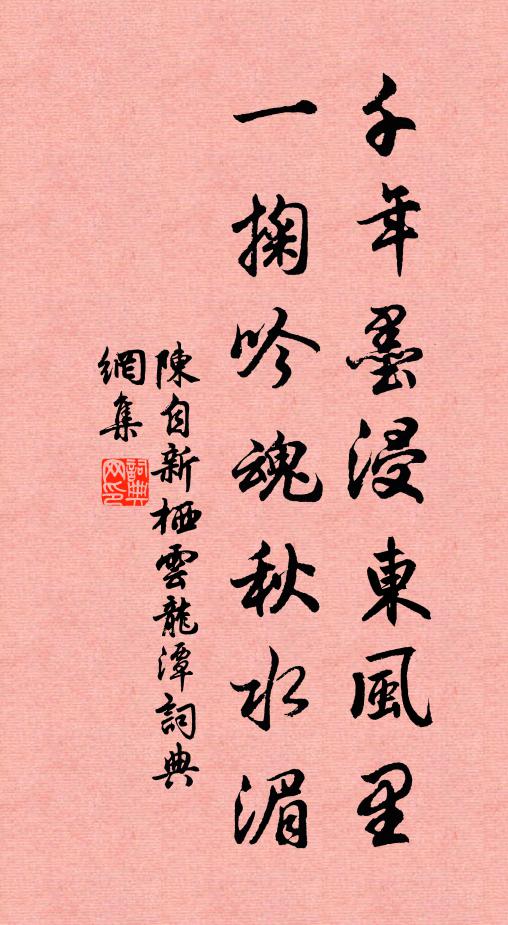 千年墨浸東風里
一掬吟魂秋水湄
陳自新栖雲龍潭詞典
網集
詞典网印